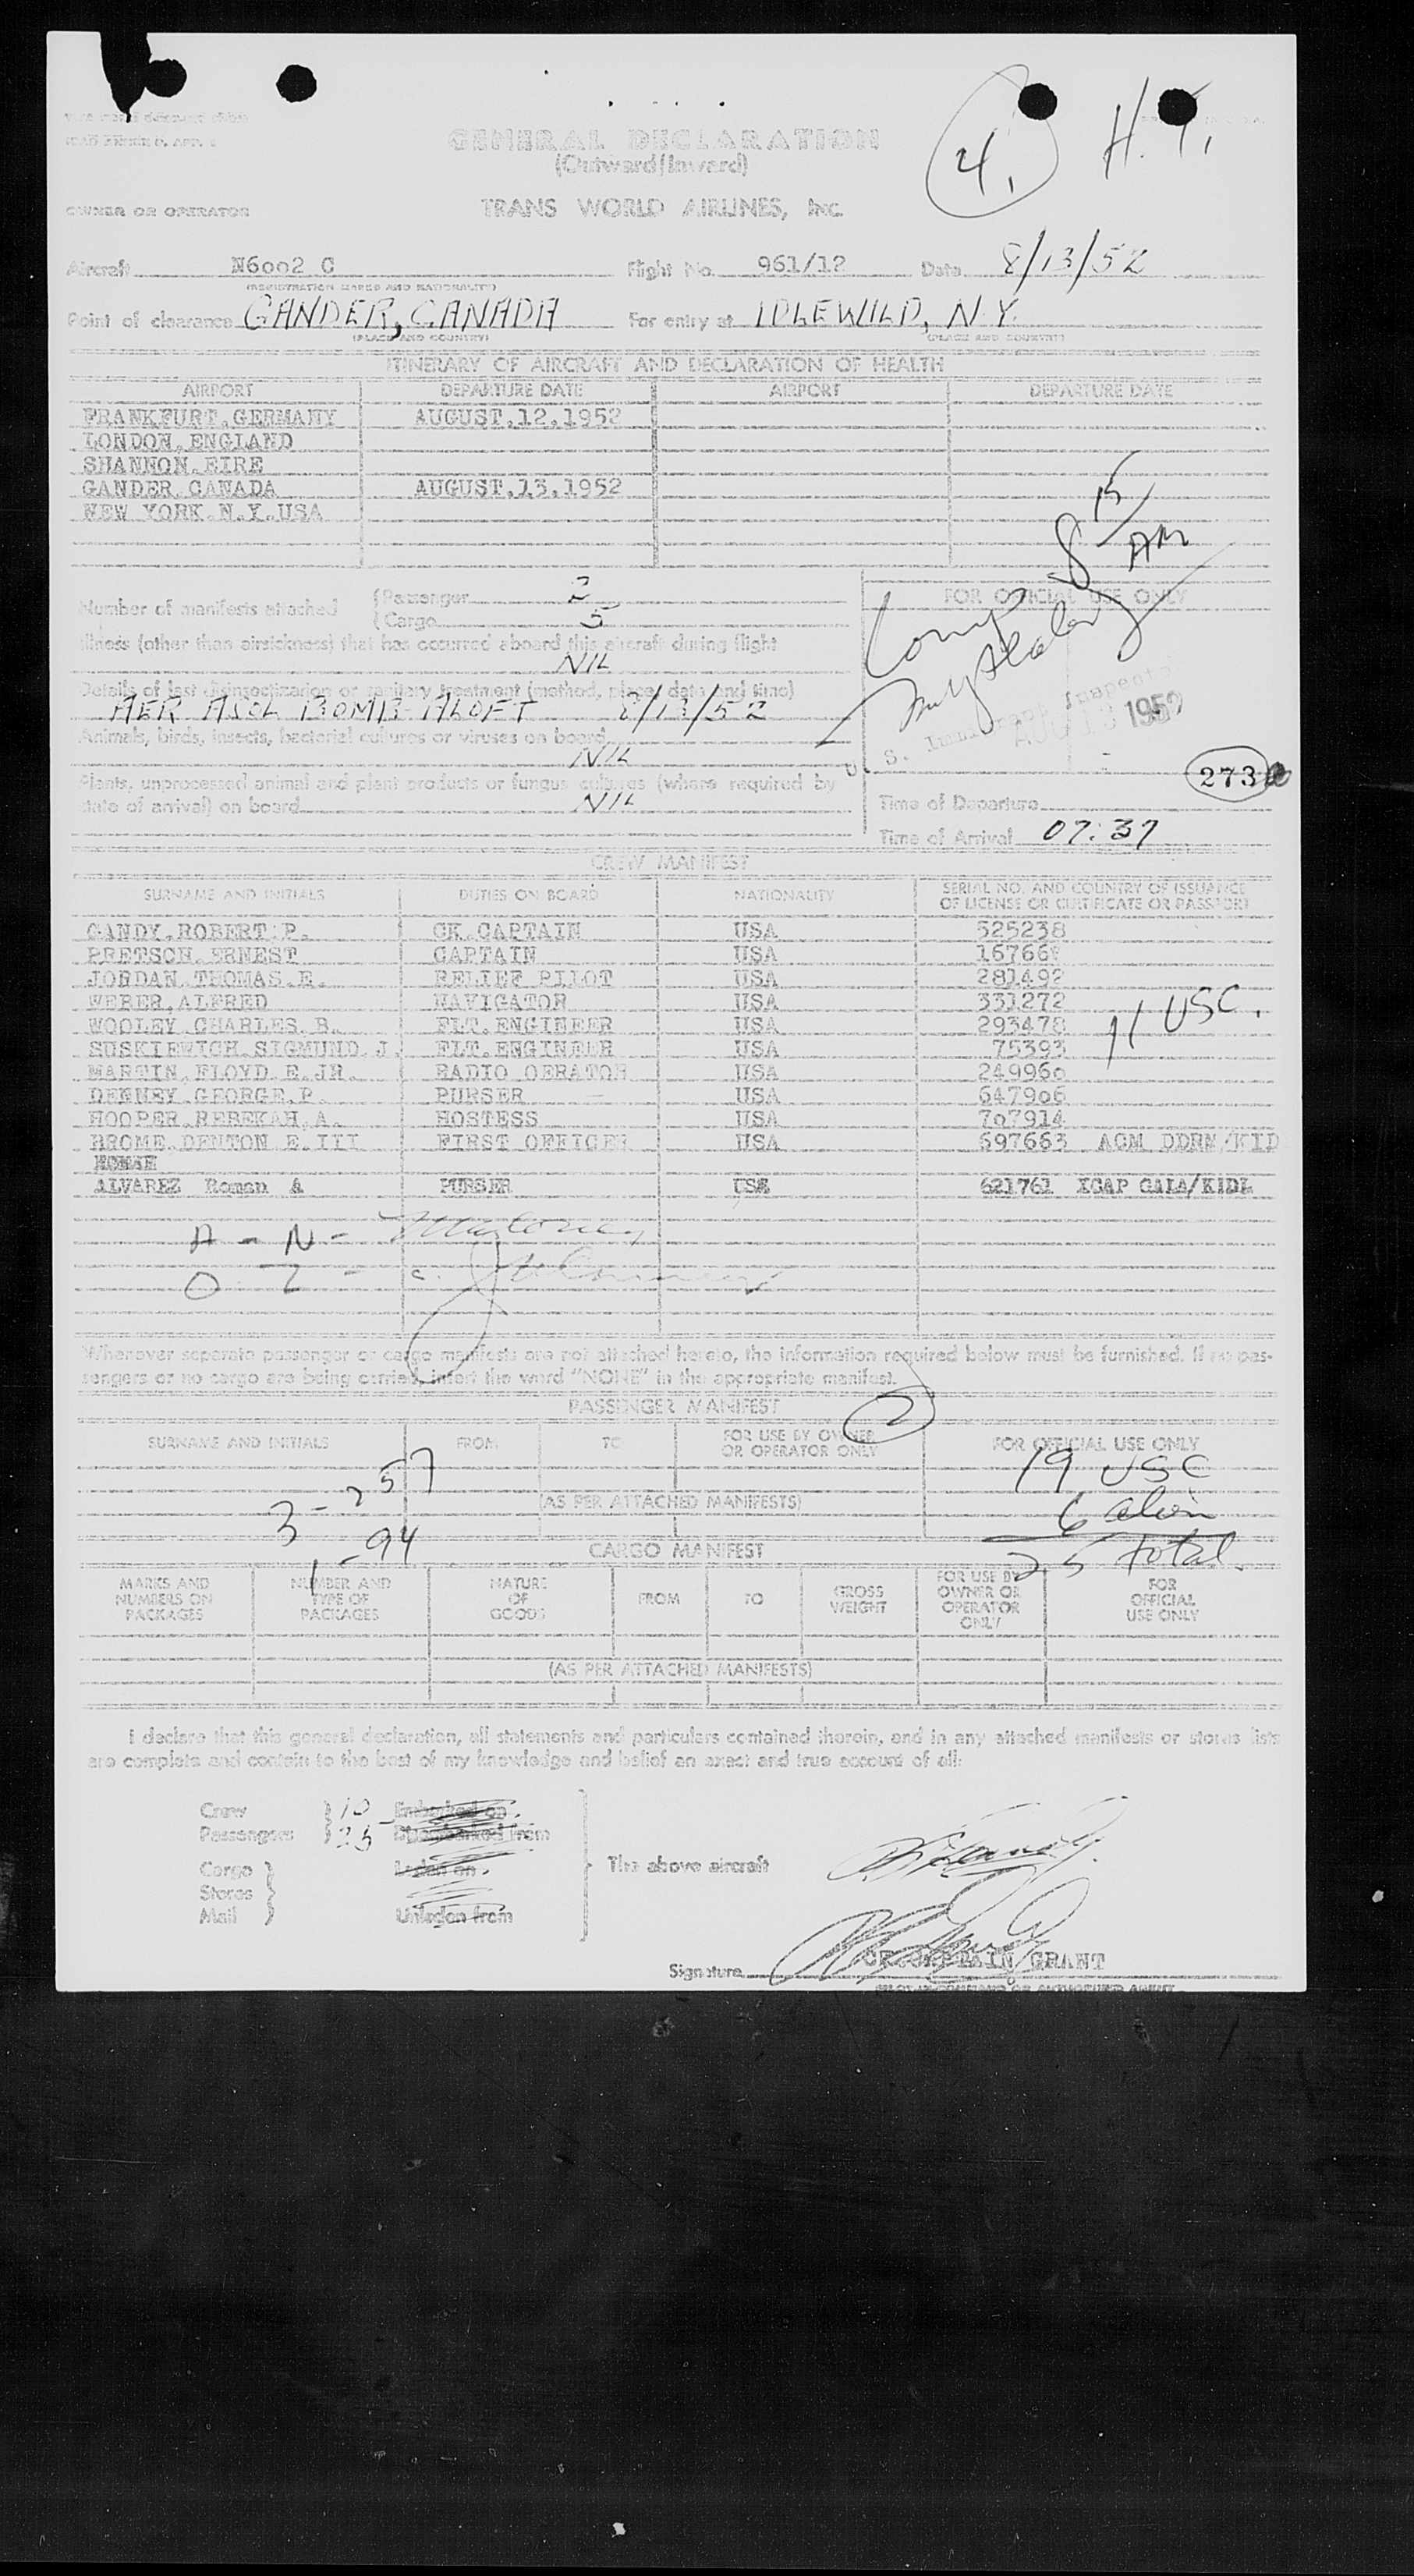 4. H. T.
GENERAL DECLARATION
(Outward/Inward)
OWNER OR OPERATOR TRANS WORLD AIRLINES, Inc.
Aircraft N6002 C Flight No. 961/12 Date 8/13/52
(REGISTRATION MARKS AND NATIONALITY)
Point of clearance GANDER, CANADA For entry at IDLEWILD, N.Y.
(PLACE AND COUNTRY) (PLACE AND COUNTRY)
ITINERARY OF AIRCRAFT AND DECLARATION OF HEALTH
AIRPORT DEPARTURE DATE AIRPORT DEPARTURE DATE
FRANKFURT.GERMANY AUGUST.12.1952
LONDON.ENGLAND
SHANNON.EIRE
GANDER CANADA AUGUST.13.1952
NEW YORK.N.Y.USA
8 15 AM
Number of manifests attached {Passenger 2
{Cargo 5
FOR OFFICIAL USE ONLY
Illness (other than airsickness) that has occurred aboard this aircraft during flight
NIL
Details of last disinsectization or sanitary treatment (method, place, date and time)
AER ASOL BOMB ALOFT 8/13/52
AUG 13 1952
Animals, birds, insects, bacterial cultures or viruses on board
NIL
273
Plants, unprocessed animal and plant products or fungus cultures (where required by
state of arrival) on board NIL
Time of Departure
Time of Arrival 07:37
CREW MANIFEST
SURNAME AND INITIALS DUTIES ON BOARD NATIONALITY SERIAL NO. AND COUNTRY OF ISSUANCE
OF LICENSE OR CERTIFICATE OR PASSPORT
GANDY.ROBERT P. CK.CAPTAIN USA 525238
PRETSCH.ERNEST CAPTAIN USA 16766
JORDAN.THOMAS.E. RELIEF PILOT USA 281492
WEBER.ALFRED NAVIGATOR USA 331272
WOOLEY CHARLES.B. FLT.ENGINEER USA 293478 11 USC.
SUSKIEWICH.SIGMUND.J. FLT.ENGINEER USA 75393
MARTIN.FLOYD.E.JR. RADIO OERATOR USA 249960
DENNEY GEORGE.P. PURSER USA 647906
HOOPER.REBEKAH.A. HOSTESS USA 707914
BROME.DENTON E.III FIRST OFFICER USA 697663 AGM DDRM/KID
ALVAREZ Roman A PURSER USA 621761 XGAP GALA/KIDL
A - N -
O - Z -
Whenever separate passenger or cargo manifests are not attached hereto, the information required below must be furnished. If no pas-
sengers or no cargo are being carried, insert the word "NONE" in the appropriate manifest.
PASSENGER MANIFEST
2
SURNAME AND INITIALS FROM TO FOR USE BY OWNER
OR OPERATOR ONLY FOR OFFICIAL USE ONLY
19 USC
3 - 257 (AS PER ATTACHED MANIFESTS) 6 alien
1 - 94 25 total.
CARGO MANIFEST
MARKS AND
NUMBERS ON
PACKAGES NUMBER AND
TYPE OF
PACKAGES NATURE
OF
GOODS FROM TO GROSS
WEIGHT FOR USE BY
OWNER OR
OPERATOR
ONLY FOR
OFFICIAL
USE ONLY
(AS PER ATTACHED MANIFESTS)
I declare that this general declaration, all statements and particulars contained therein, and in any attached manifests or stores lists
are complete and contain to the best of my knowledge and belief an exact and true account of all:
Crew } 10 Embarked on
Passengers } 25 Disembarked from
Cargo } Laden on The above aircraft
Stores
Mail } Unladen from
Signature CK.CAPTAIN GRANT